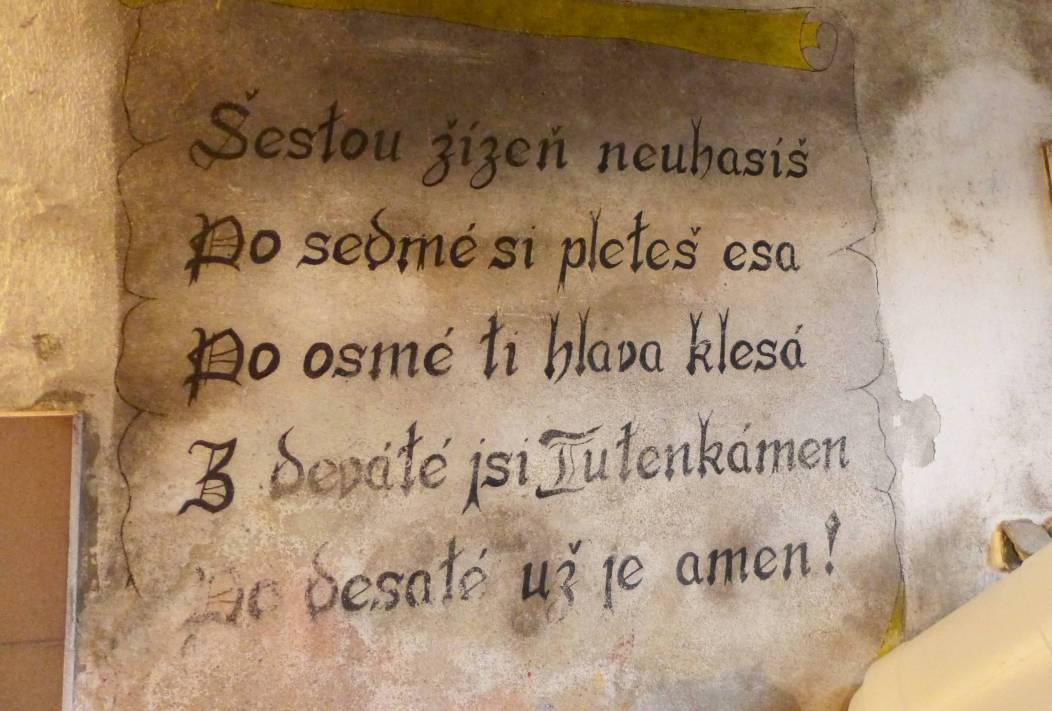 Šestou žízeň neuhasíš
Po sedmé si pleteš esa
Po osmé ti hlava klesá
Z deváté jsi Tutenkámen
Po desaté už je amen!